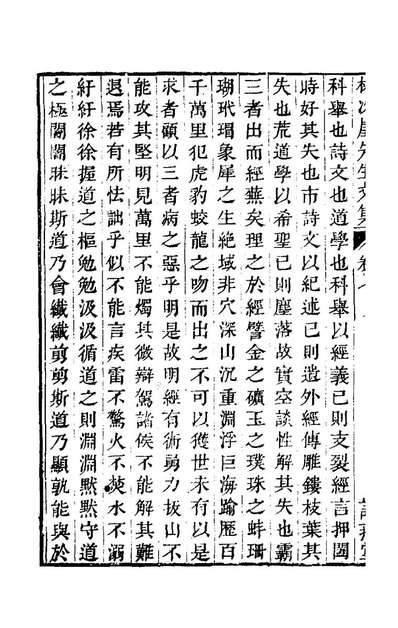 林次崖先生文集 卷
科舉也詩文也道學也科舉以經義已則支裂經言押闔
時好其失也市詩文以紀述已則遺外經傳雕鏤枝葉其
失也荒道學以希聖已則塵落故實空談性解其失也霸
三者出而經蕪矣理之於經譬金之礦玉之璞珠之蚌珊
瑚玳瑁象犀之生絶域非穴深山沉重淵浮巨海踰歷百
千萬里犯虎豹蛟龍之吻而出之不可以獲世未有以是
求者顧以三者病之惡乎明是故明經有術勇力拔山不
能攻其堅明見萬里不能燭其微辯駕諸侯不能解其難
退焉若有所怯詘乎似不能言疾雷不驚火不爇水不溺
紆紆徐徐握道之樞勉勉汲汲循道之則淵淵默默守道
之極闇闇昧昧斯道乃會纖纖剪剪斯道乃顯孰能與於